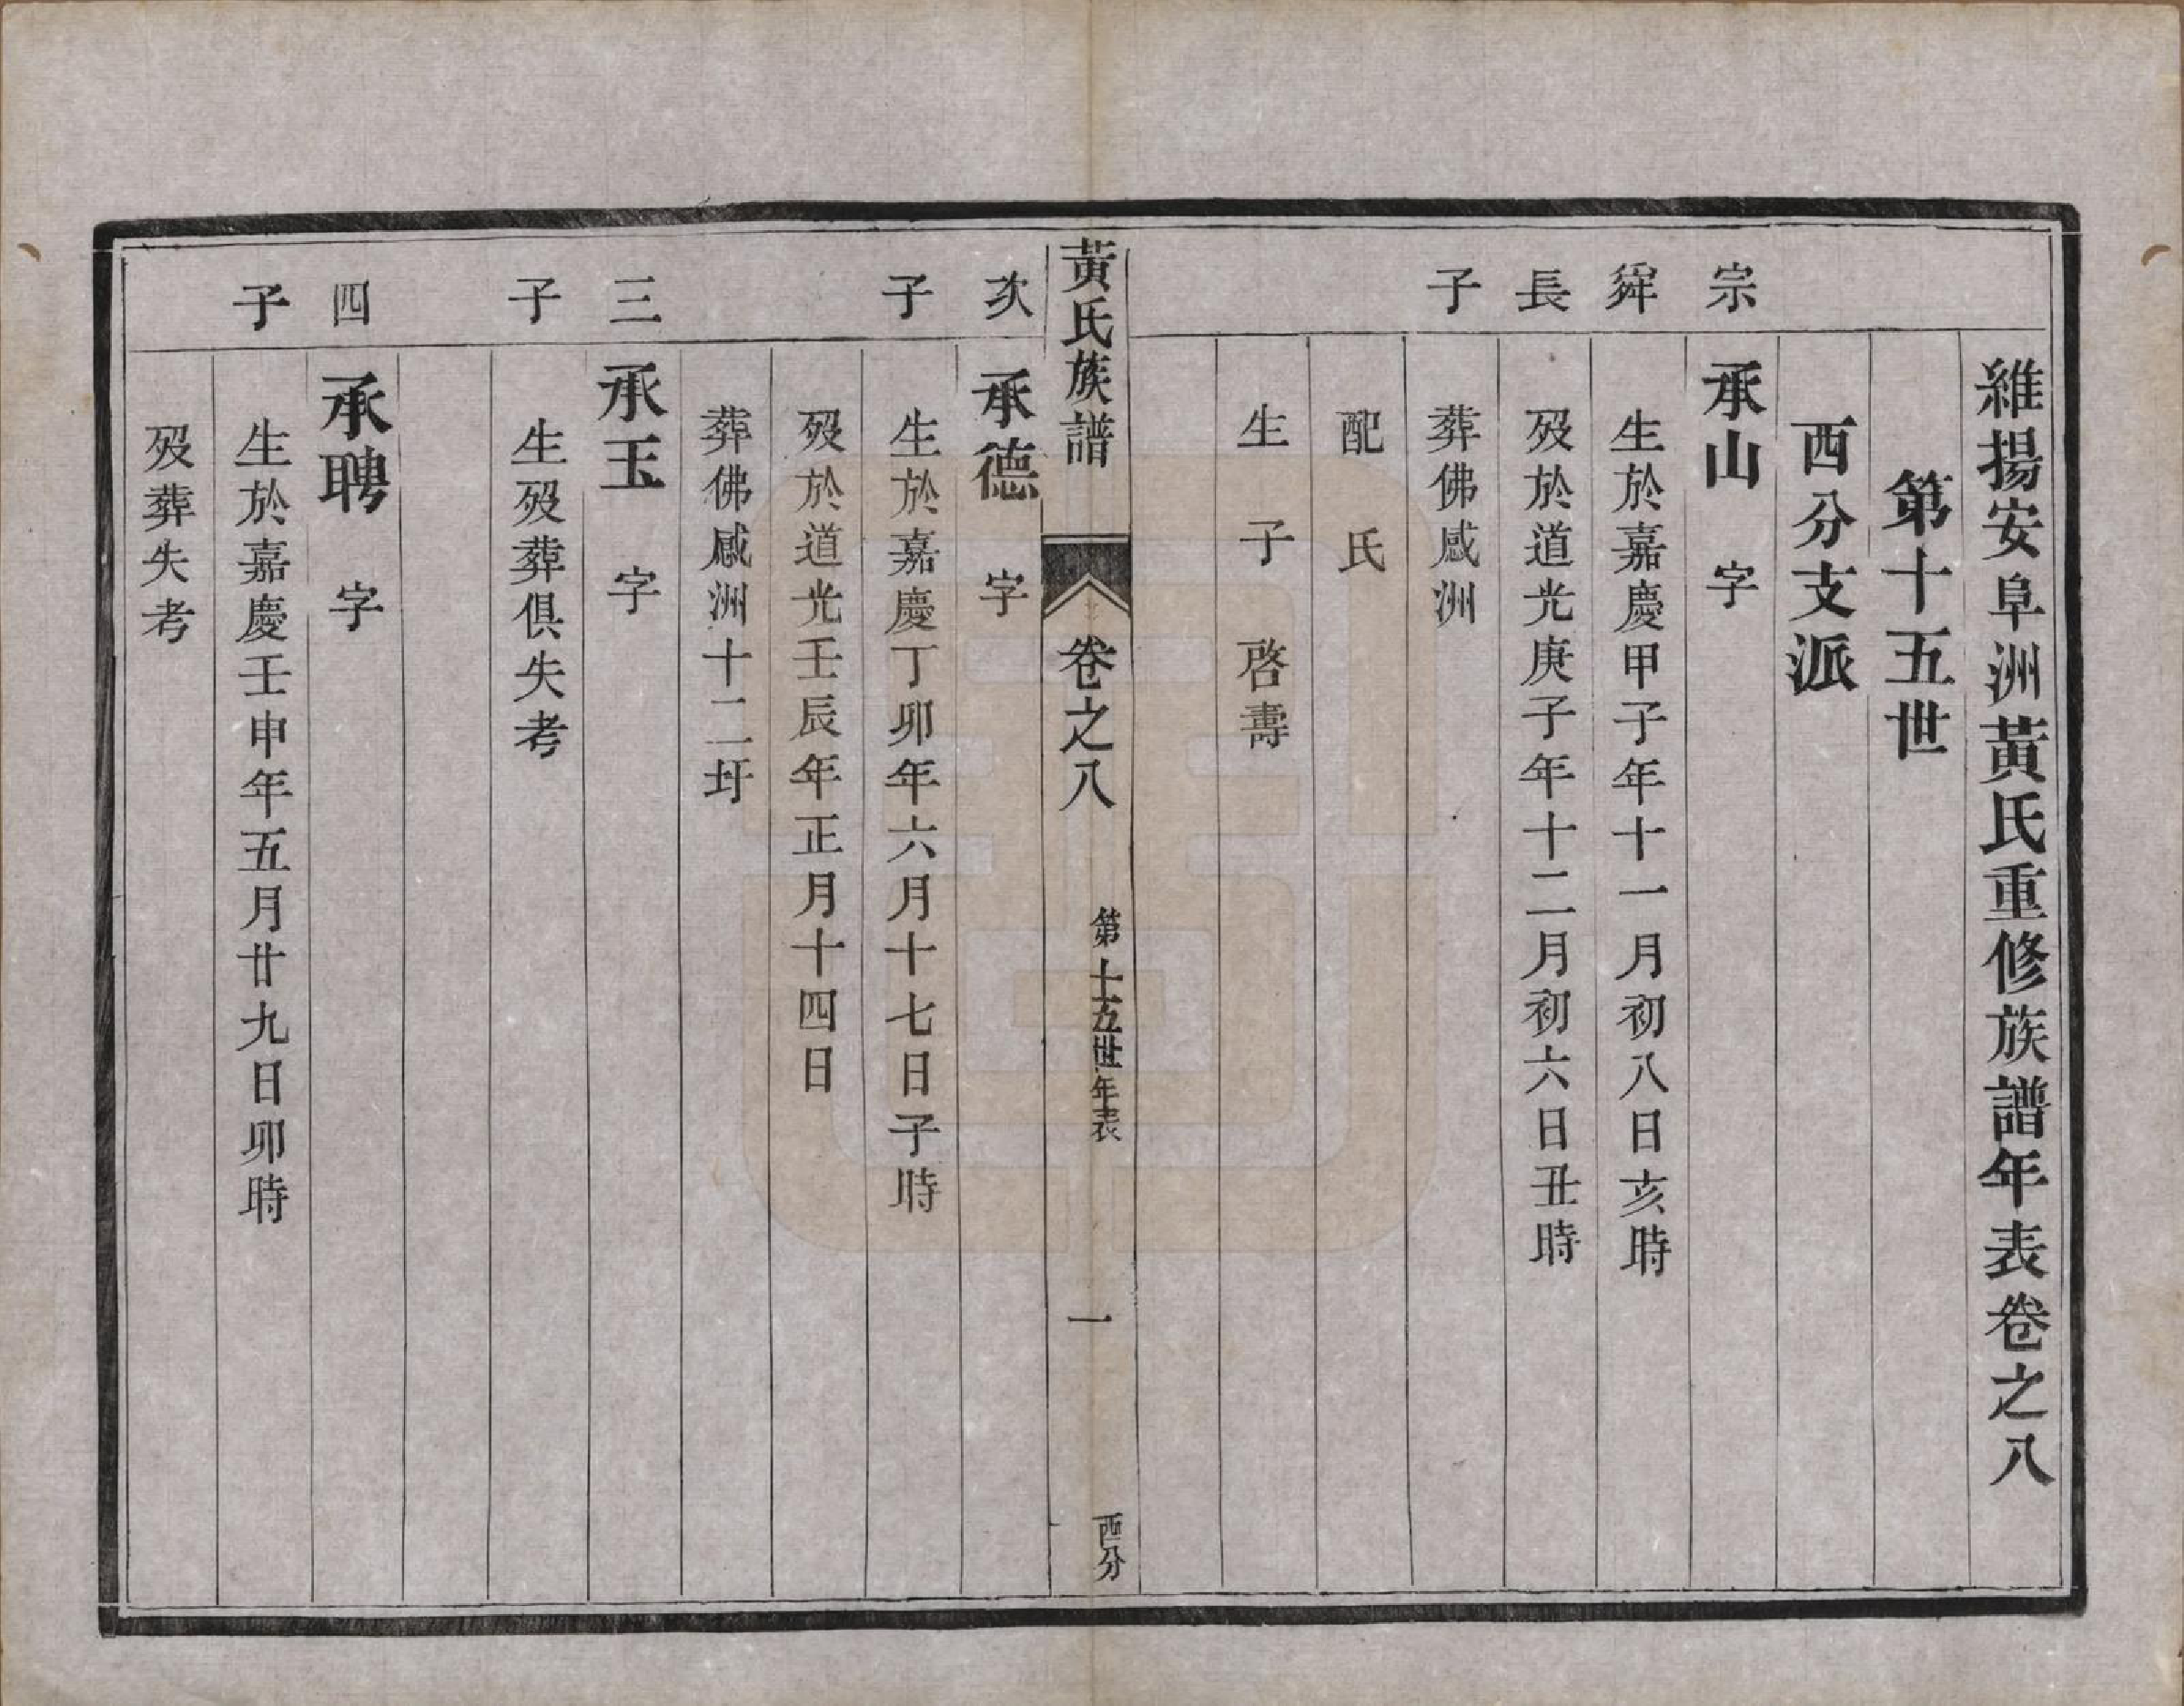 維揚安阜洲黃氏重修族譜年表卷之八
第十五世
西分支派
宗舜長子
承山　字
生於嘉慶甲子年十一月初八日亥時
歿於道光庚子年十二月初六日丑時
葬佛感洲
配　氏
生　子　啓壽
黃氏族譜　卷之八　第十五世年表　一　西分
次子
承德　字
生於嘉慶丁卯年六月十七日子時
歿於道光壬辰年正月十四日
葬佛感洲十二圩
三子
承玉　字
生歿葬俱失考
四子
承聘　字
生於嘉慶壬申年五月廿九日卯時
歿葬失考